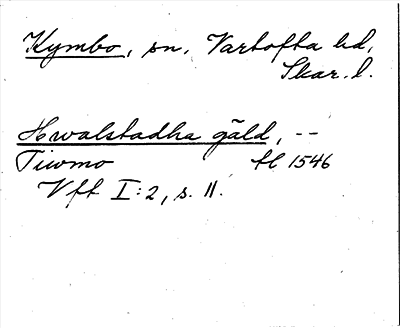 Kymbo, sn, Vartofta hd,
Skar. l.
Hwalstadha gäld, --
Tiwmo fl 1546
Vft I:2, s. 11.